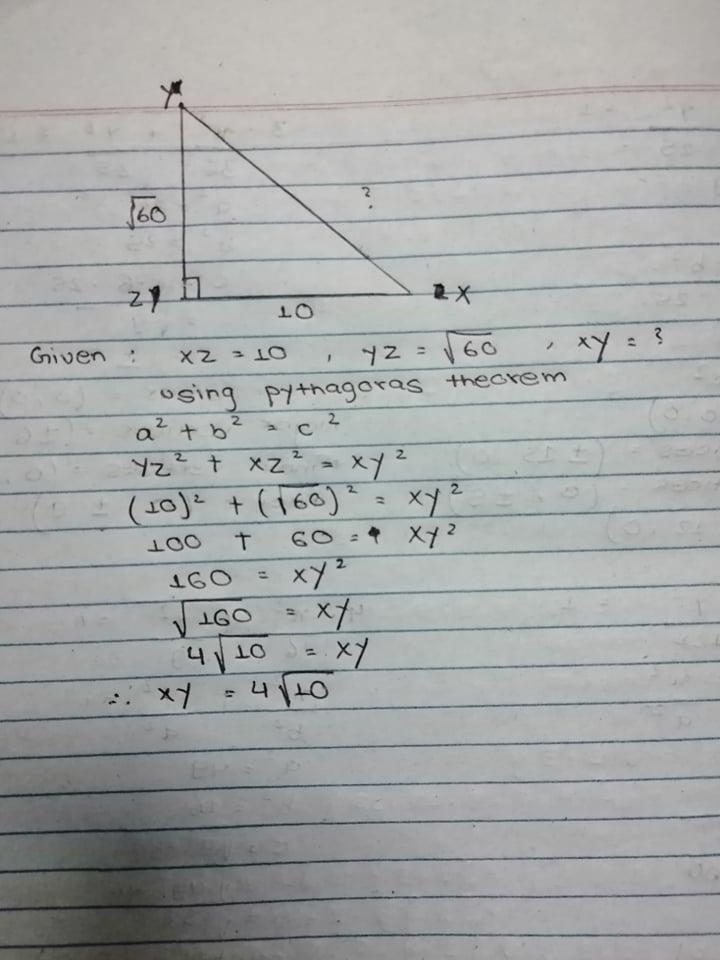 Y
√60
?
Z X
10
Given : XZ = 10 , YZ = √60 , XY = ?
using pythagoras theorem
a² + b² = c²
YZ² + XZ² = XY²
(10)² + (√60)² = XY²
100 + 60 = XY²
160 = XY²
√160 = XY
4√10 = XY
∴ XY = 4√10